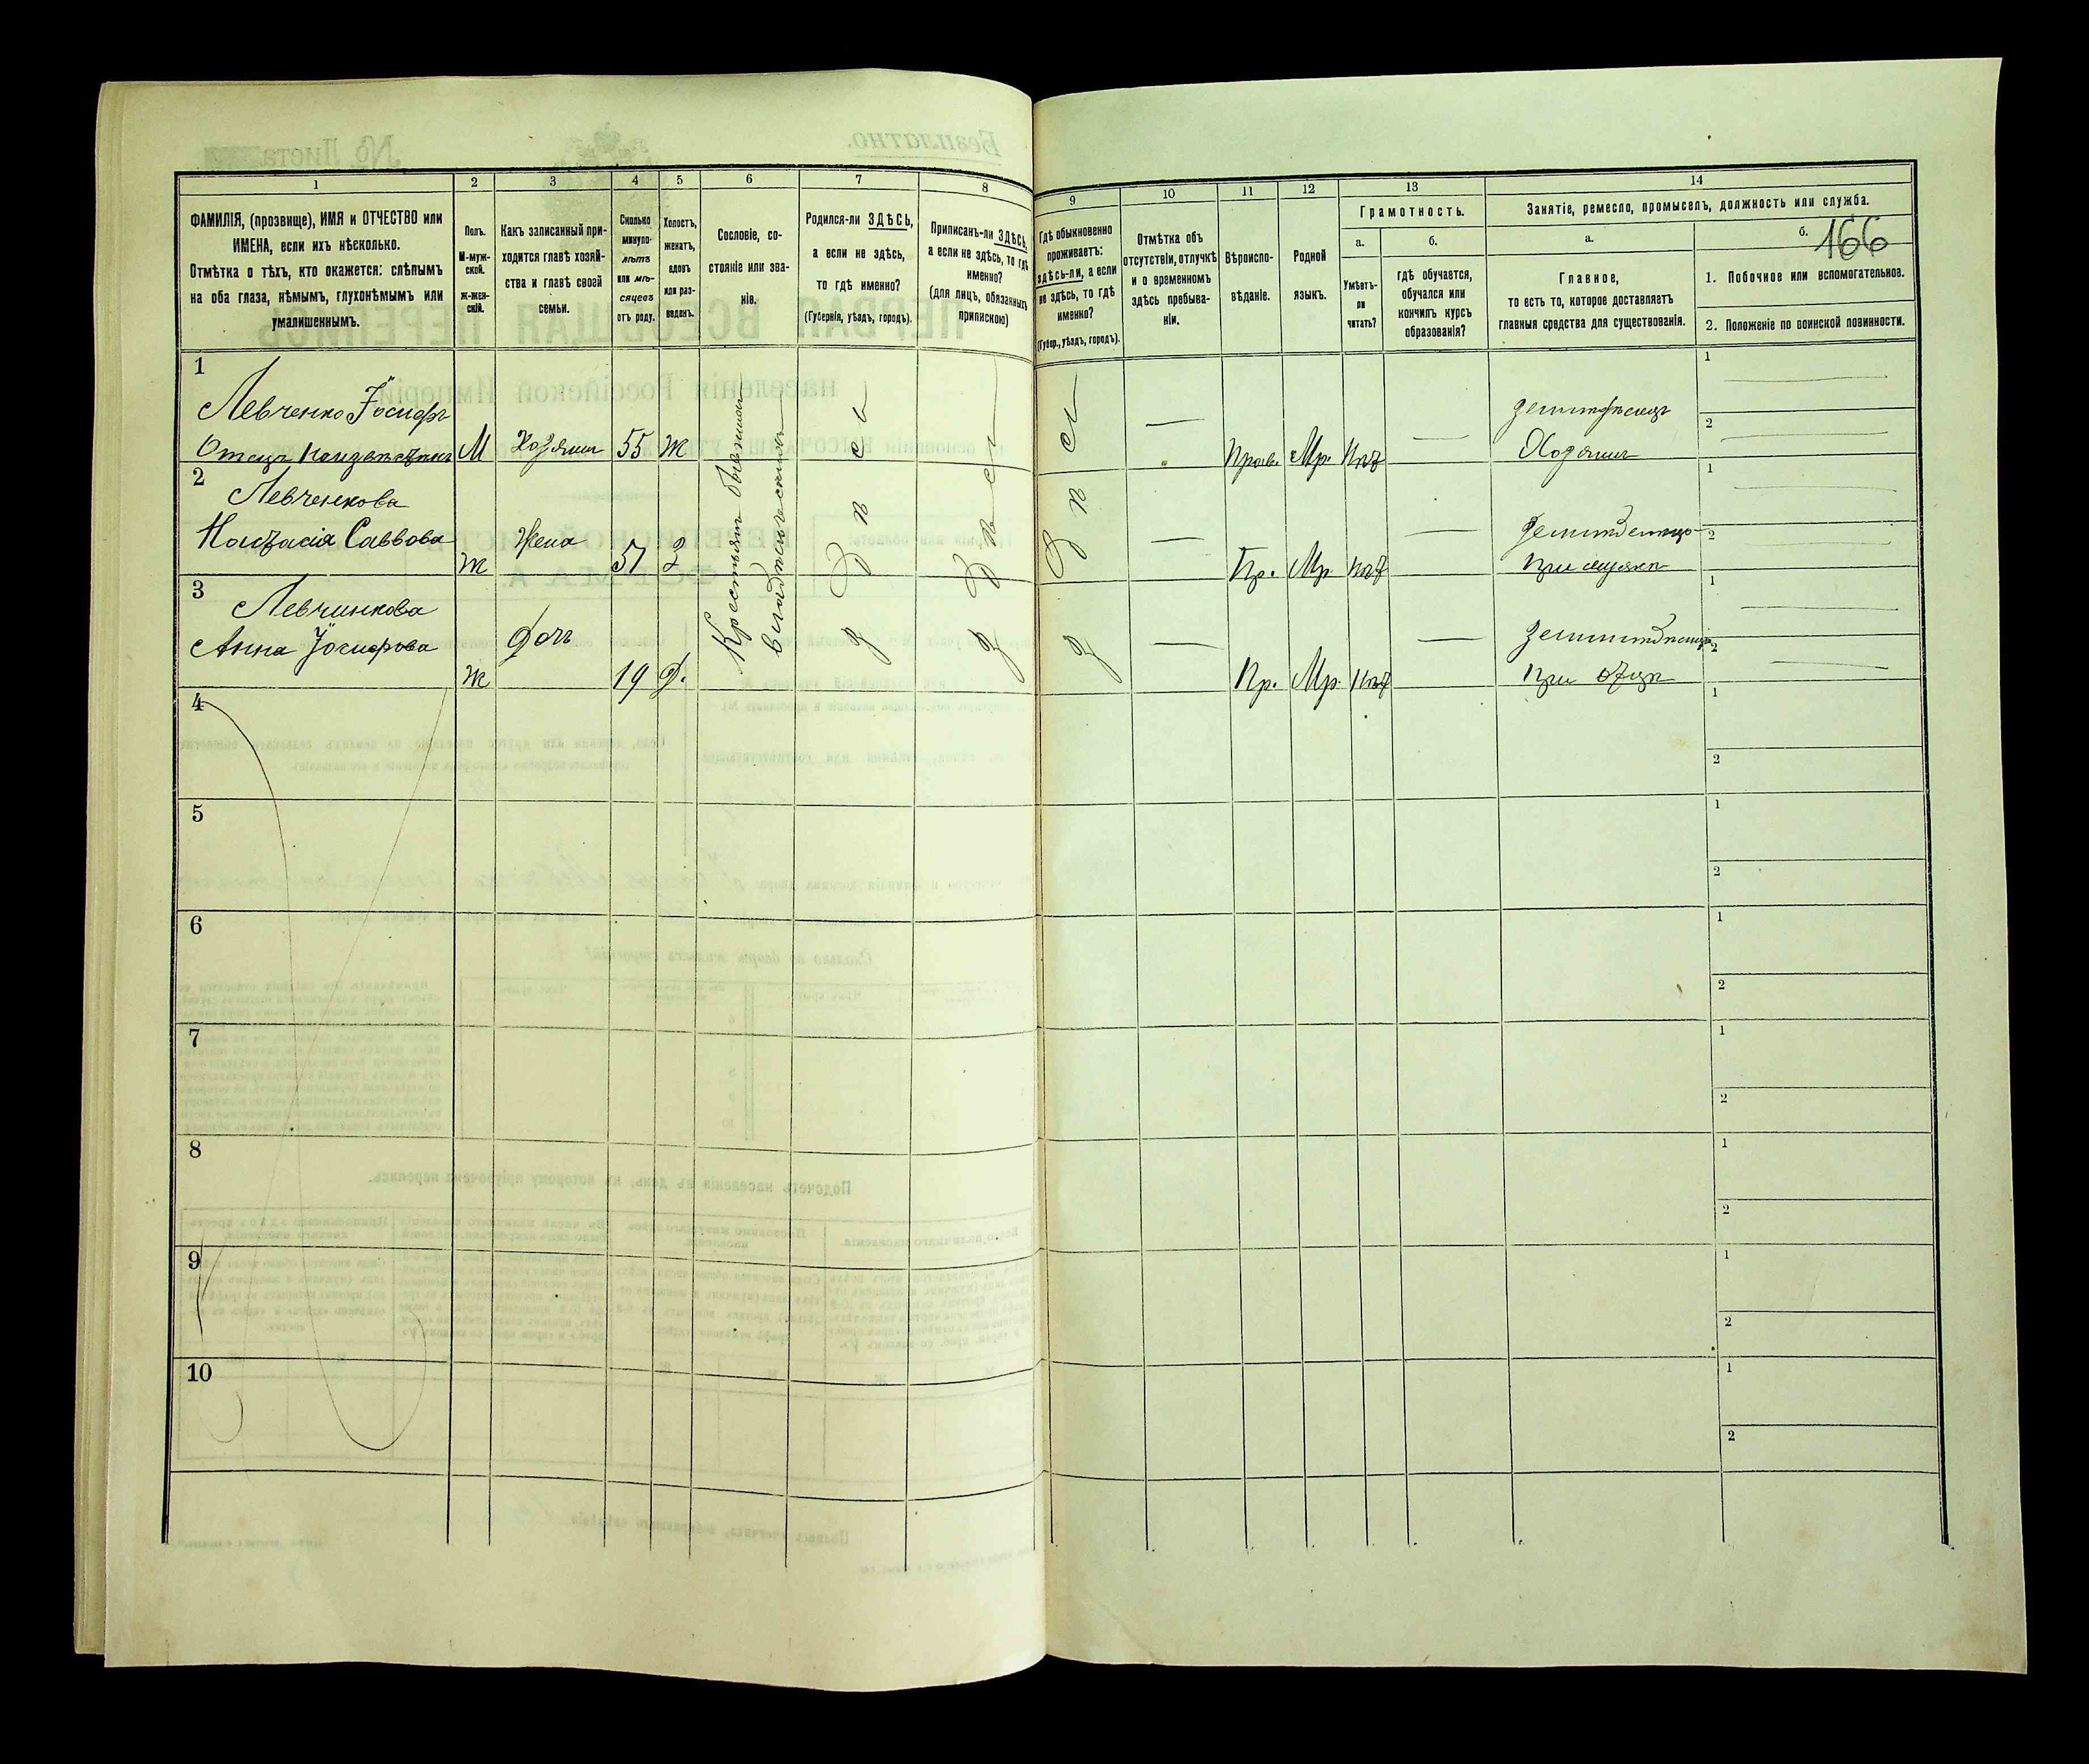 1
2
3
4
5
6
7
8
ФАМИЛІЯ, (прозвище), ИМЯ и ОТЧЕСТВО или
ИМЕНА, если ихъ нѣсколько.
Отмѣтка о тѣхъ, кто окажется: слѣпымъ
на оба глаза, нѣмымъ, глухонѣмымъ или
умалишеннымъ.
Полъ.
М-муж-
ской.
ж-жен-
скій.
Какъ записанный при-
ходится главѣ хозяй-
ства и главѣ своей
семьи.
Сколько
минуло
лѣтъ
или мѣ-
сяцевъ
отъ роду.
Холостъ,
женатъ,
вдовъ
или раз-
веденъ.
Сословіе, со-
стояніе или зва-
ніе.
Родился-ли ЗДѢСЬ,
а если не здѣсь,
то гдѣ именно?
(Губернія, уѣздъ, городъ).
Приписанъ-ли ЗДѢСЬ,
а если не здѣсь, то гдѣ
именно?
(для лицъ, обязанныхъ
припискою)
9
10
11
12
13
14
Гдѣ обыкновенно
проживаетъ:
здѣсь-ли, а если
не здѣсь, то гдѣ
именно?
(Губер., уѣздъ, городъ).
Отмѣтка объ
отсутствіи, отлучкѣ
и о временномъ
здѣсь пребыва-
ніи.
Вѣроиспо-
вѣданіе.
Родной
языкъ.
Грамотность.
а.
б.
Умѣетъ-
ли
читать?
гдѣ обучается,
обучался или
кончилъ курсъ
образованія?
Занятіе, ремесло, промыселъ, должность или служба.
166
а.
б.
Главное,
то есть то, которое доставляетъ
главныя средства для существованія.
1. Побочное или вспомогательное.
2. Положеніе по воинской повинности.
1
Левченко Іосифъ
Отецъ М Хозяинъ 55 Ж
Прав. Мр. Нѣт
Хозяинъ
1
2
2
Левченкова
Настасія Саввова
Ж Жена 51 З
Пр. Мр. Нѣт
при мужѣ
1
2
3
Левчинкова
Анна Іосифова
Ж Дочь 19 Д.
Пр. Мр. Нѣт
при отцѣ
1
2
Крестьянъ бывшихъ
владѣльческихъ
Здѣсь
Здѣсь
Здѣсь
4
1
2
5
1
2
6
1
2
7
1
2
8
1
2
9
1
2
10
1
2